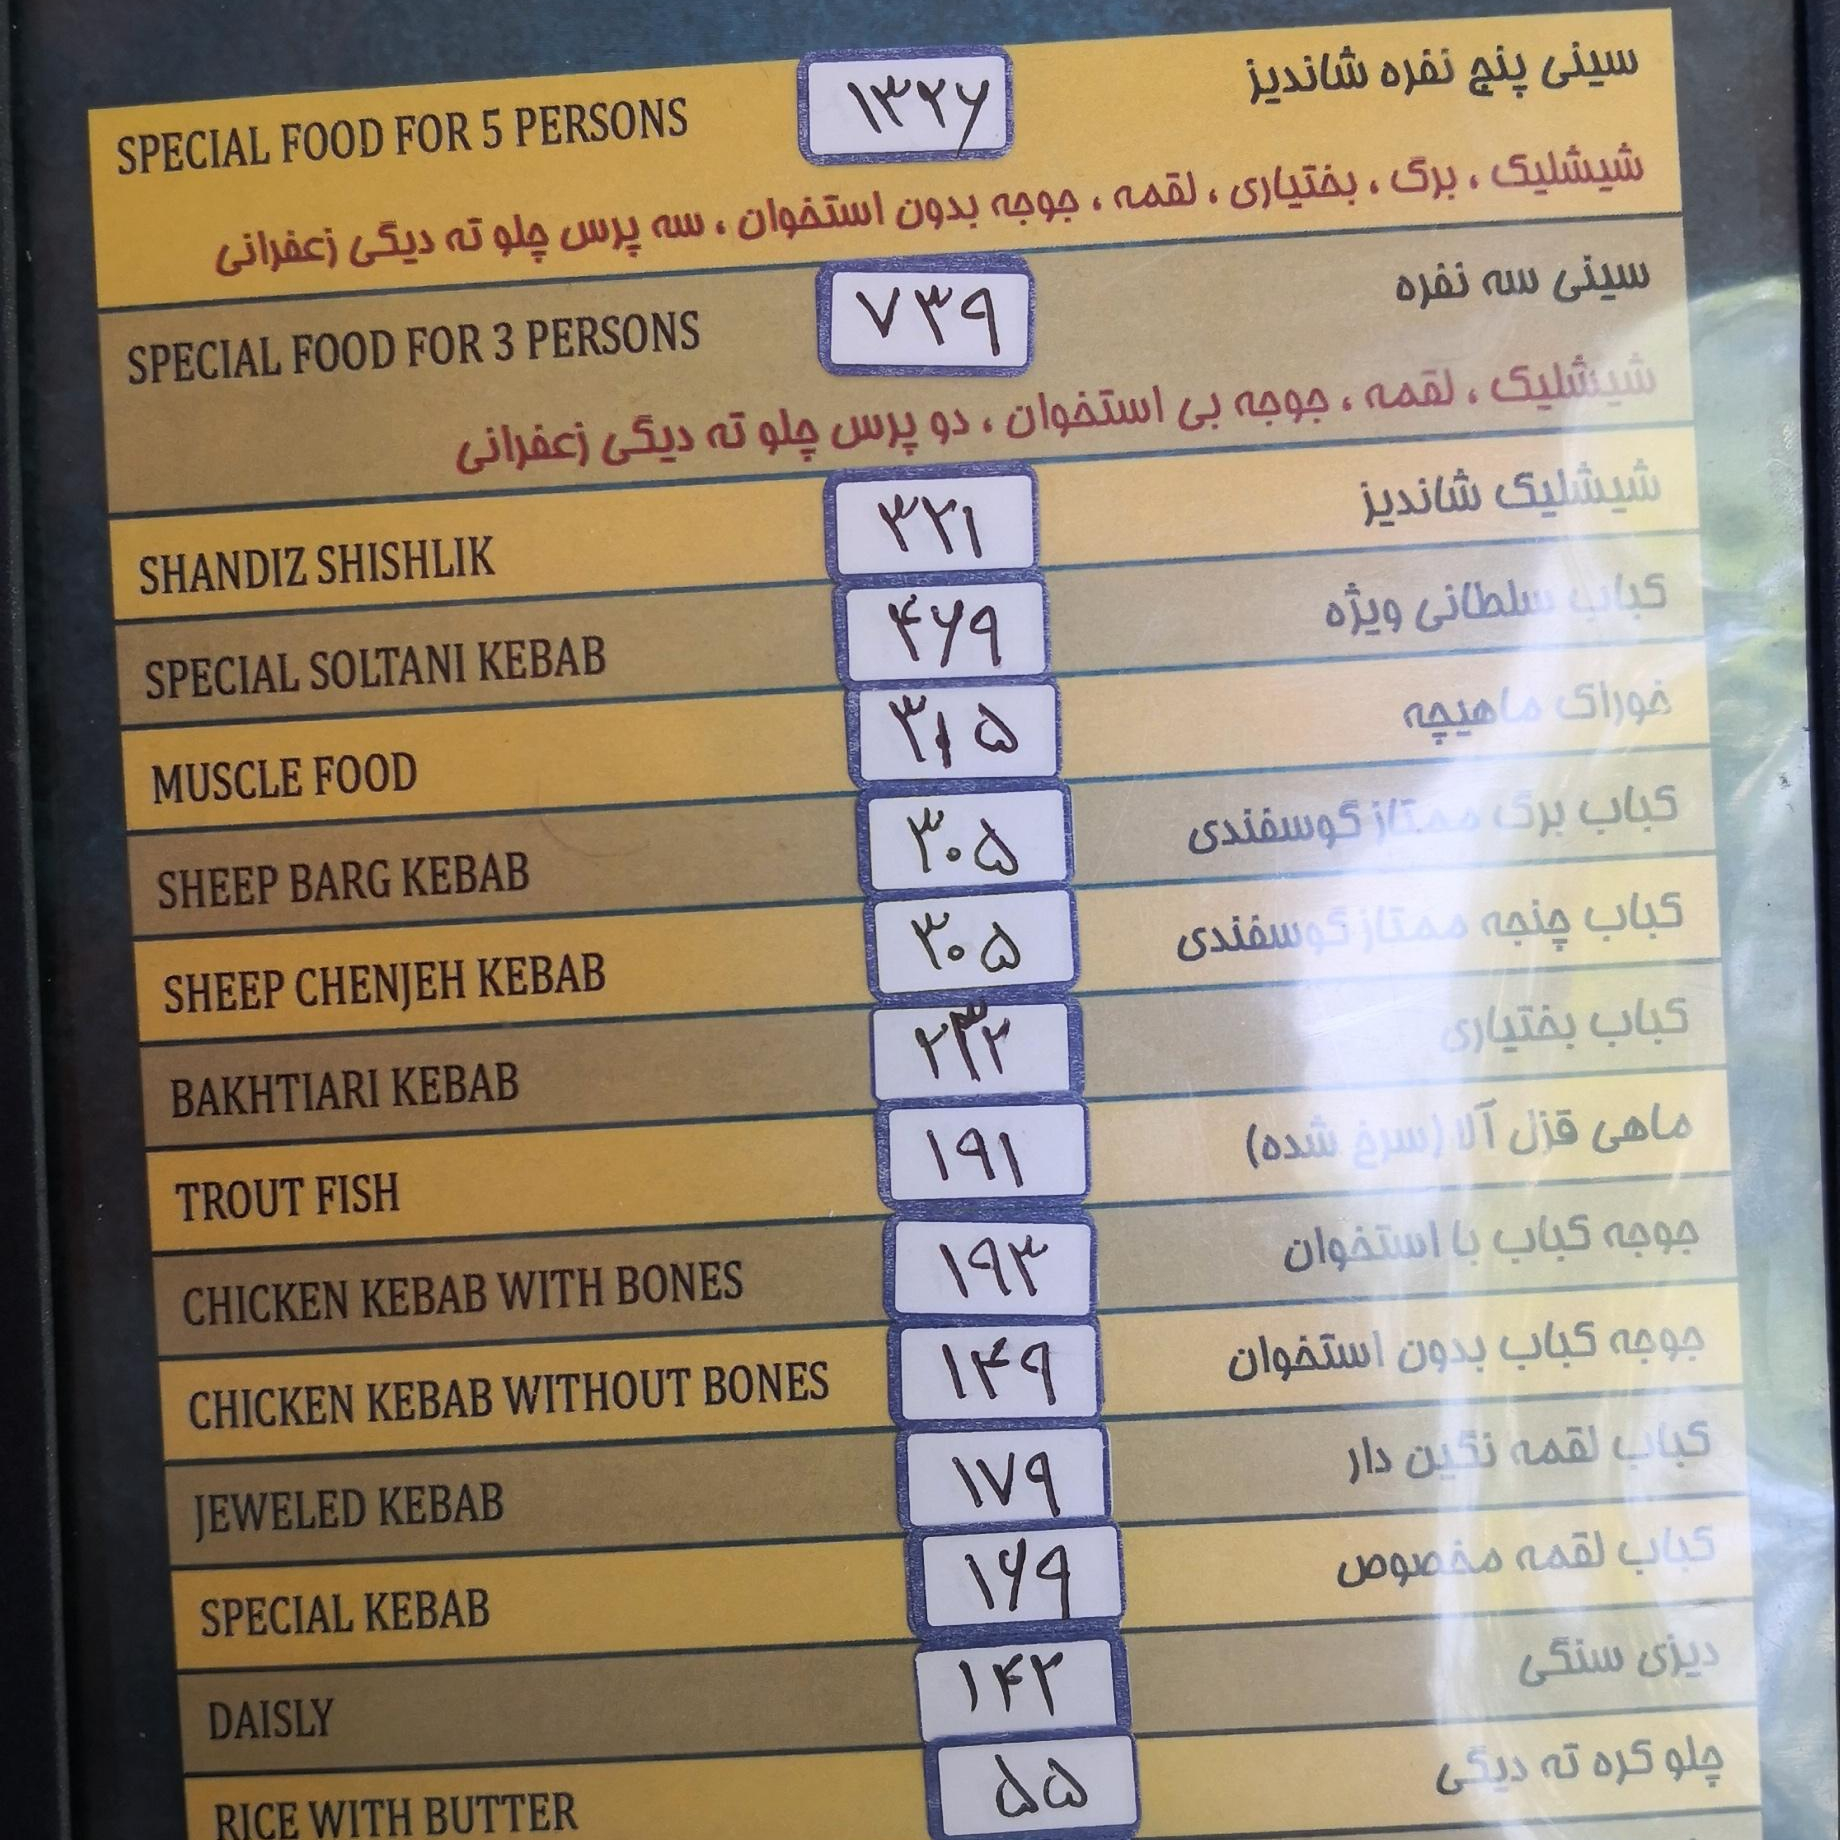 SPECIAL FOOD FOR 5 PERSONS ۱۳۲۶ سینی پنج نفره شاندیز
شیشلیک ، برگ ، بختیاری ، لقمه ، جوجه بدون استخوان ، سه پرس چلو ته دیگی زعفرانی
SPECIAL FOOD FOR 3 PERSONS ۷۳۹ سینی سه نفره
شیشلیک ، لقمه ، جوجه بی استخوان ، دو پرس چلو ته دیگی زعفرانی
SHANDIZ SHISHLIK ۳۲۱ شیشلیک شاندیز
SPECIAL SOLTANI KEBAB ۴۶۹ کباب سلطانی ویژه
MUSCLE FOOD ۳۱۵ خوراک ماهیچه
SHEEP BARG KEBAB ۳۰۵ کباب برگ ممتاز گوسفندی
SHEEP CHENJEH KEBAB ۳۰۵ کباب چنجه ممتاز گوسفندی
BAKHTIARI KEBAB ۲۳۲ کباب بختیاری
TROUT FISH ۱۹۱ ماهی قزل آلا (سرخ شده)
CHICKEN KEBAB WITH BONES ۱۹۳ جوجه کباب با استخوان
CHICKEN KEBAB WITHOUT BONES ۱۴۹ جوجه کباب بدون استخوان
JEWELED KEBAB ۱۷۹ کباب لقمه نگین دار
SPECIAL KEBAB ۱۶۹ کباب لقمه مخصوص
DAISLY ۱۴۲ دیزی سنگی
RICE WITH BUTTER ۵۵ چلو کره ته دیگی